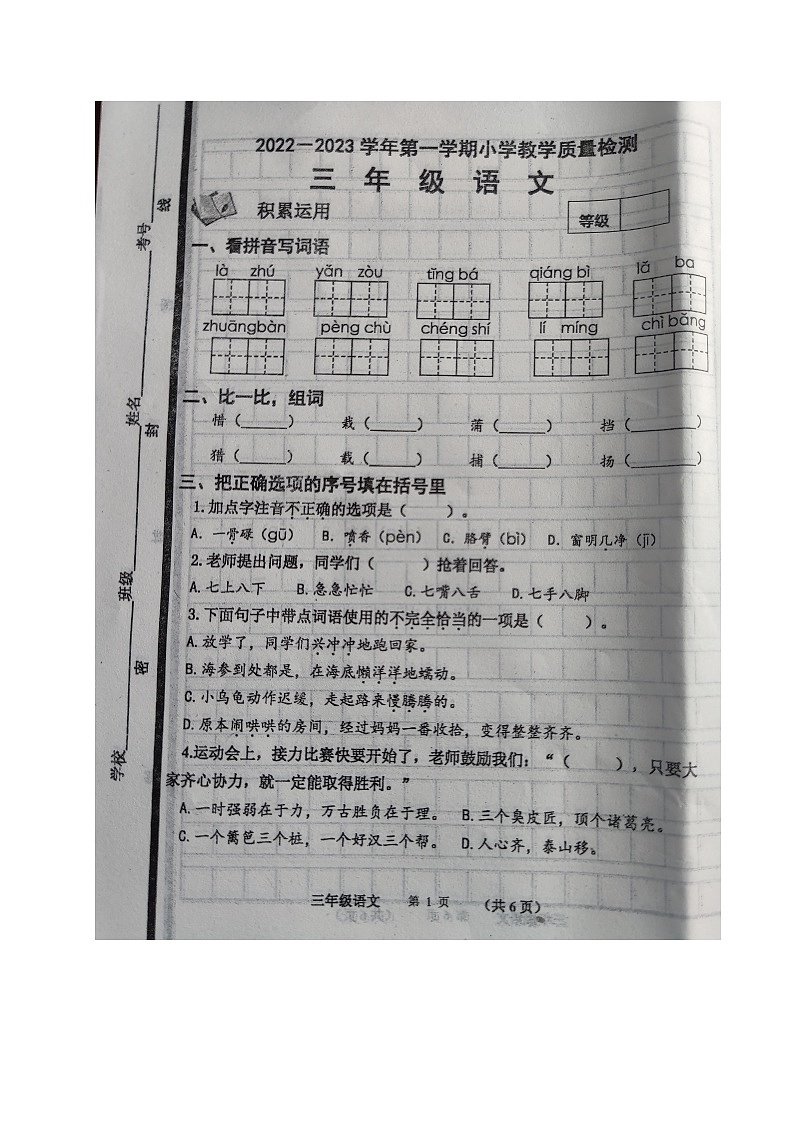 2022－2023 学年第一学期小学教学质量检测
三 年 级 语 文
积累运用
等级
一、看拼音写词语
là zhú yǎn zòu tīng bá qiáng bì lǎ ba
zhuāng bàn pèng chù chéng shí lí míng chì bǎng
二、比一比，组词
惜（_____） 栽（_____） 蒲（_____） 挡（_____）
猎（_____） 载（_____） 捕（_____） 扬（_____）
三、把正确选项的序号填在括号里
1.加点字注音不正确的选项是（ ）。
A. 一骨碌（gū） B. 喷香（pèn） C. 胳臂（bì） D. 窗明几净（jī）
2.老师提出问题，同学们（ ）抢着回答。
A.七上八下 B.急急忙忙 C.七嘴八舌 D.七手八脚
3.下面句子中带点词语使用的不完全恰当的一项是（ ）。
A.放学了，同学们兴冲冲地跑回家。
B.海参到处都是，在海底懒洋洋地蠕动。
C.小乌龟动作迟缓，走起路来慢腾腾的。
D.原本闹哄哄的房间，经过妈妈一番收拾，变得整整齐齐。
4.运动会上，接力比赛快要开始了，老师鼓励我们：“（ ），只要大
家齐心协力，就一定能取得胜利。”
A.一时强弱在于力，万古胜负在于理。 B.三个臭皮匠，顶个诸葛亮。
C.一个篱笆三个桩，一个好汉三个帮。 D.人心齐，泰山移。
三年级语文 第 1 页 （共 6 页）
学校
班级
姓名
考号
密
封
线